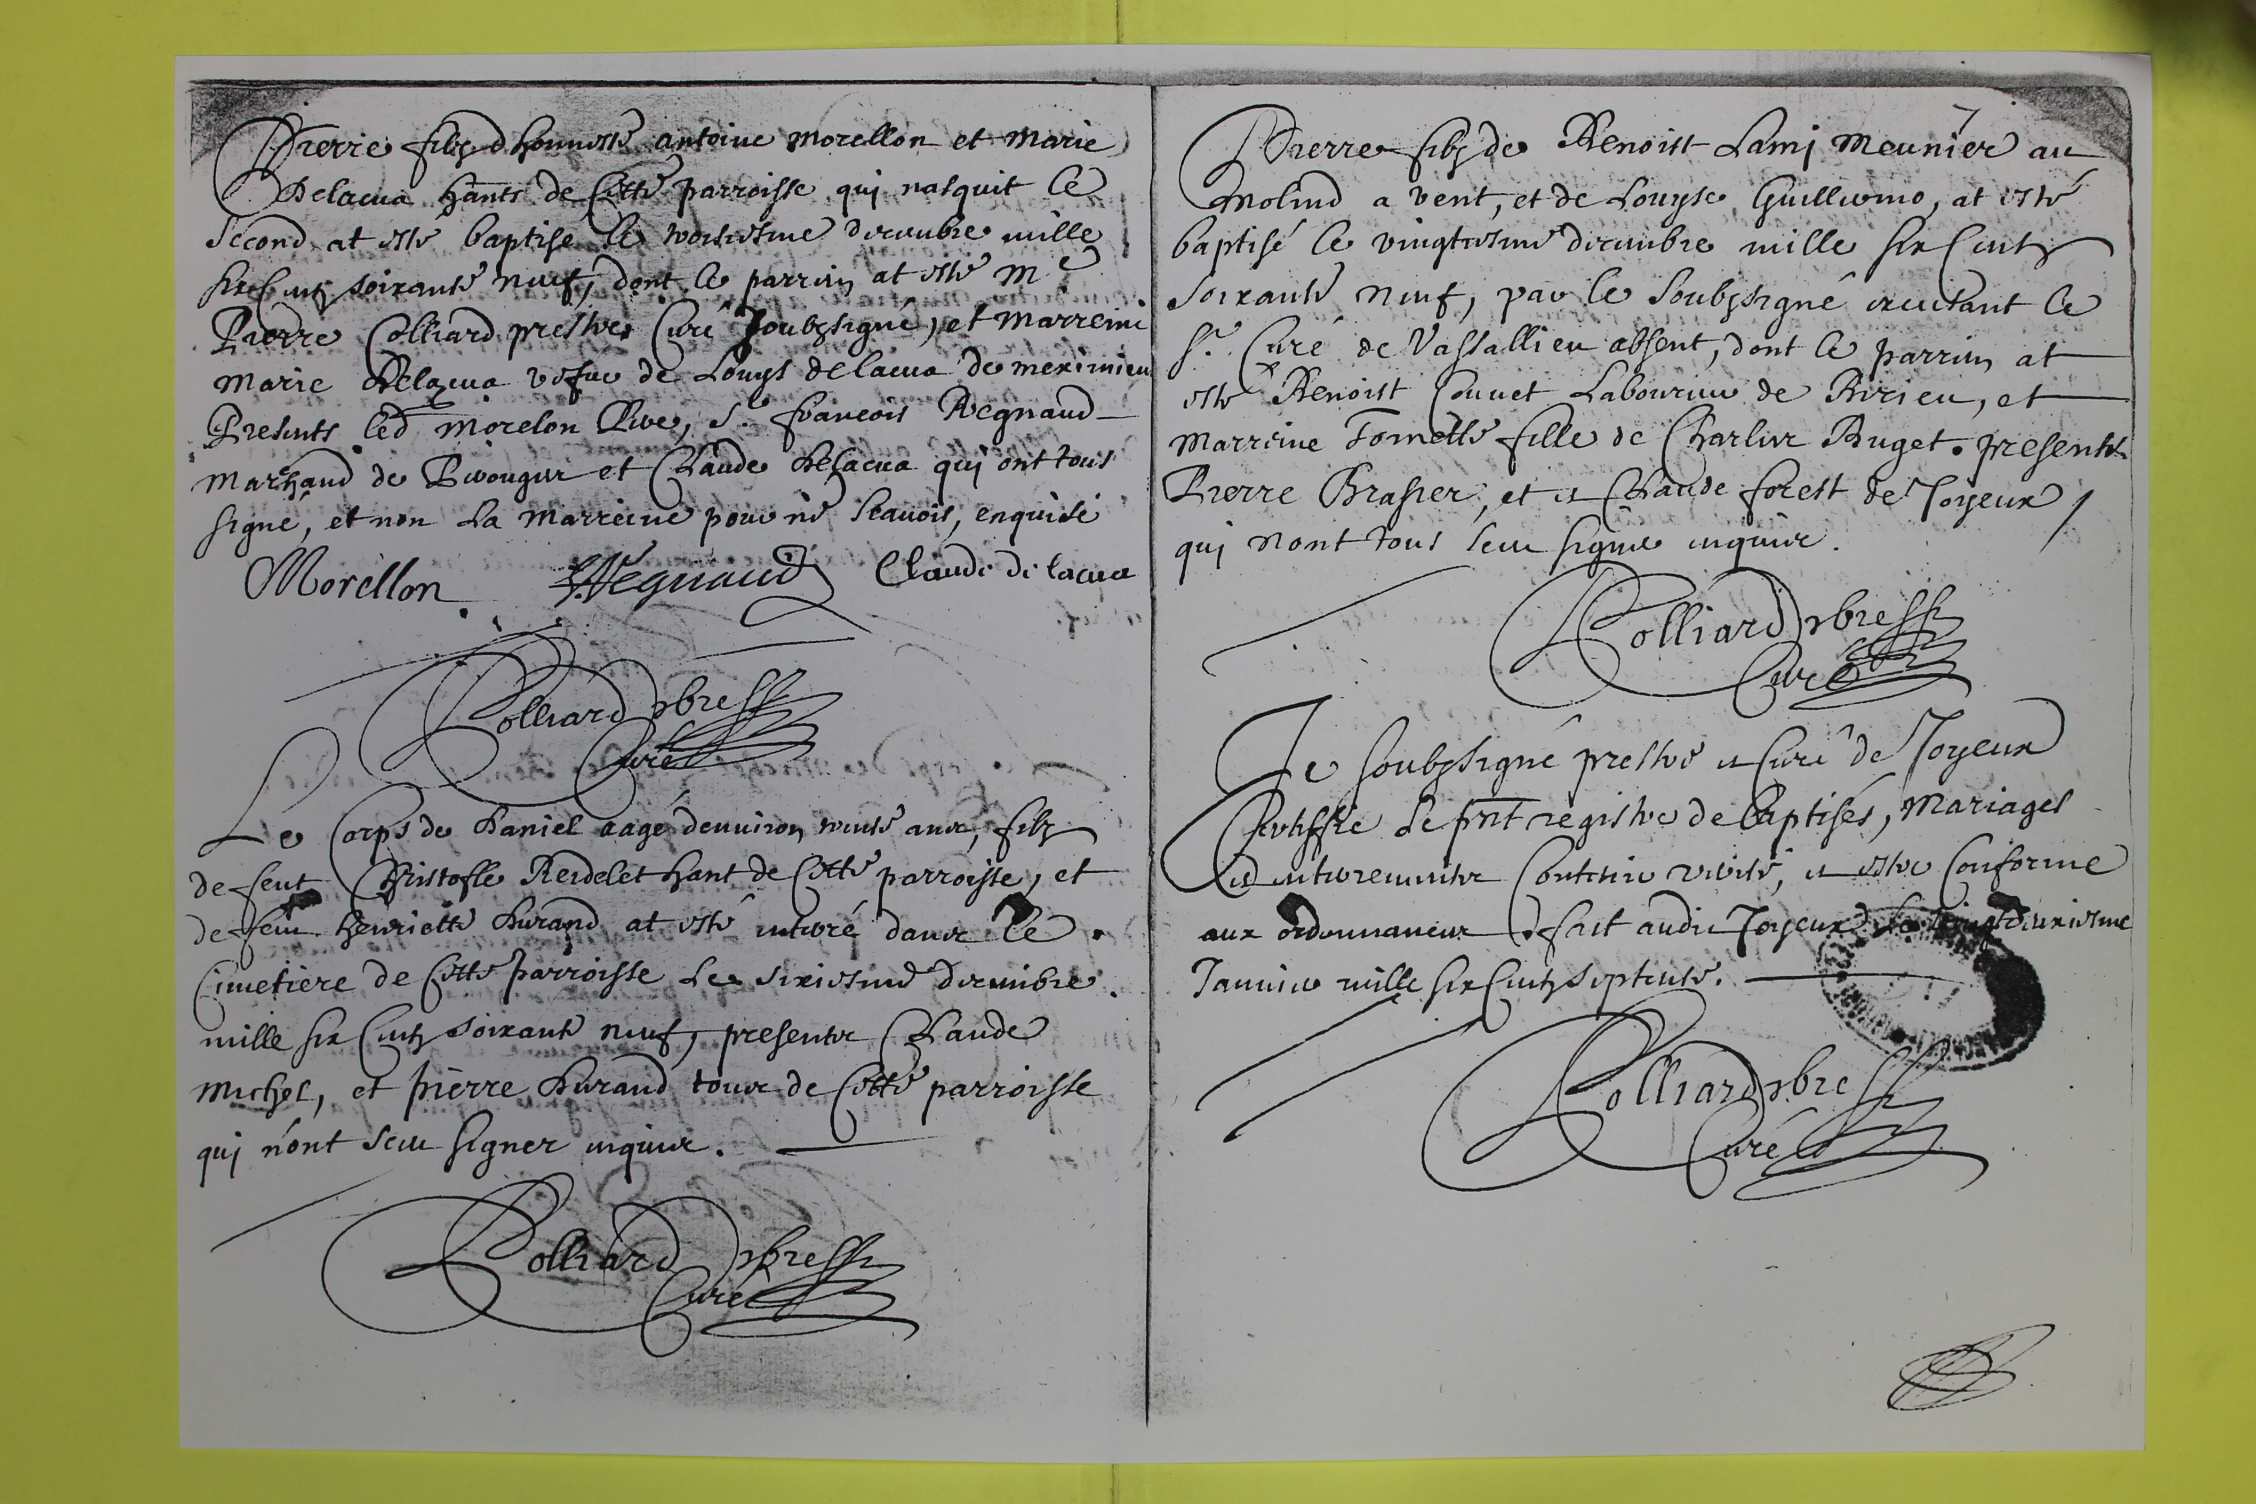 Pierre filz d honneste antoine morellon et Marie
Delacua hants de Cette parroisse qui nasquit le
second at esté baptise le troisiesme decembre mille
six Cents soixante neuf, dont le parrin at esté Mre
Pierre Colliard prestre Curé soubzsigné, et Marreine
Marie Delacua vefue de Louys delacua de meximieu
Presents led morelon Pere, Sr. francois Regnaud
Marchand de Perouges et Claude Delacua qui ont tous
signé, et non La Marreine pour ne scauoir, enquise
Morellon Regnaud Claude de lacua
Colliard pbre
Curé
Le Corps de Daniel aagé denuiron trente ans, filz
de feut Christofle Reidelet hant de Cette parroisse, et
de feue henriette Durand at esté enterré dans Le
Cimetiere de Cette parroisse Le sixiesme decembre
mille six Cents soixante neuf, presents Claude
Michel, et pierre Durand tous de Cette parroisse
qui n'ont sceu signer enquis.
Colliard pbre
Curé
7
Pierre filz de Benoist Lami Meunier au
Molind a vent, et de Louyse Guillermo, at esté
baptisé le vingtiesme decembre mille six Cents
soixante neuf, par le Soubzsigné le
Sr. Curé de Vassallieu absent, dont le parrin at
esté Benoist Couuet Laboureur de Birieu, et
Marreine Tomette fille de Charles Buget. presents
Pierre Brasier, et Claude forest de Joyeux
qui nont tous sceu signer enquis.
Colliard pbre
Curé
Je soubzsigné prestre et Curé de Joyeux
Certiffie Le pnt registre de baptisés, Mariages
et enterrements Contenir verité, et estre Conforme
aux ordonnances fait audit Joyeux Le vingtdeuxiesme
Januier mille six Cents septente.
Colliard pbre
Curé